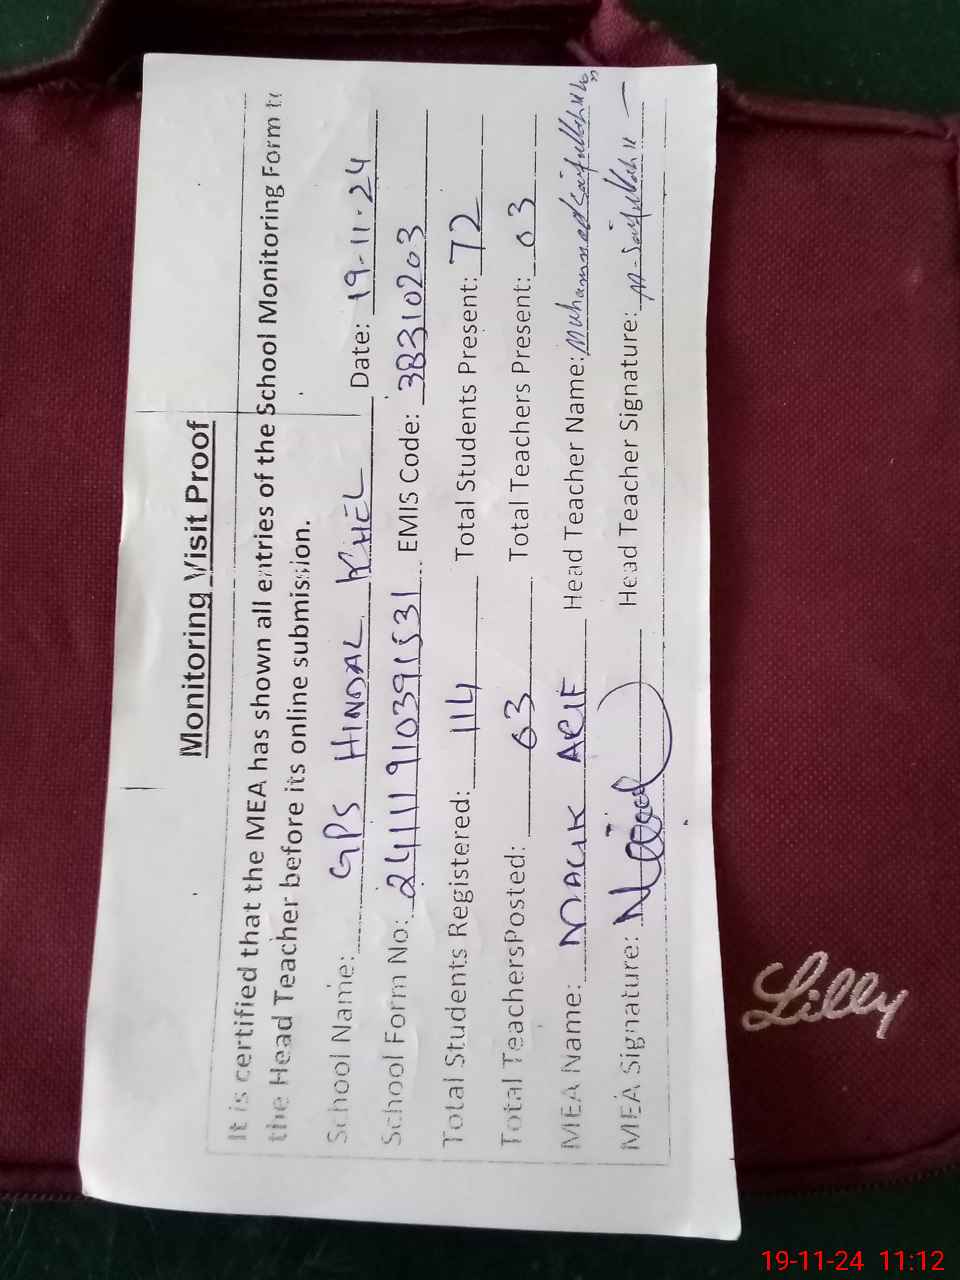 Monitoring Visit Proof
It is certified that the MEA has shown all entries of the School Monitoring Form to
the Head Teacher before its online submission.
School Name: GPS HINDAL KHEL Date: 19-11-24
School Form No: 24111910391531 EMIS Code: 38310203
Total Students Registered: 114 Total Students Present: 72
Total TeachersPosted: 03 Total Teachers Present: 03
MEA Name: MALIK ARIF Head Teacher Name: Muhammad Saifullah
MEA Signature: Head Teacher Signature: M-Saifullah
Lilly
19-11-24 11:12